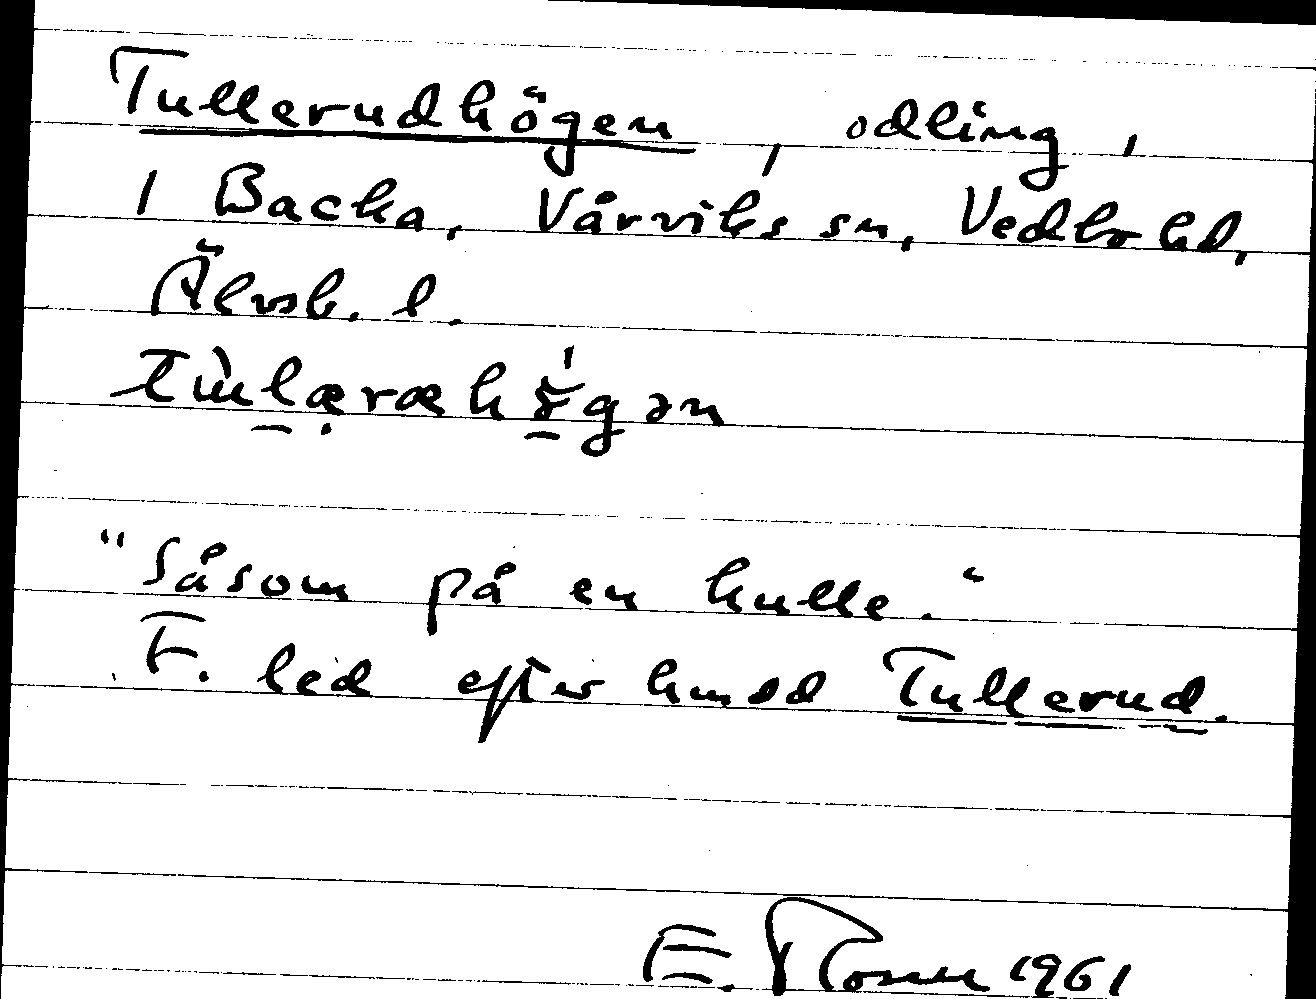 Tullerudhögen, odling,
1 Backa, Vårviks sn, Vedbo hd,
Älvsb. l.
"Såsom på en kulle."
F. led efter hmsd Tullerud.
E. Rosner 1961